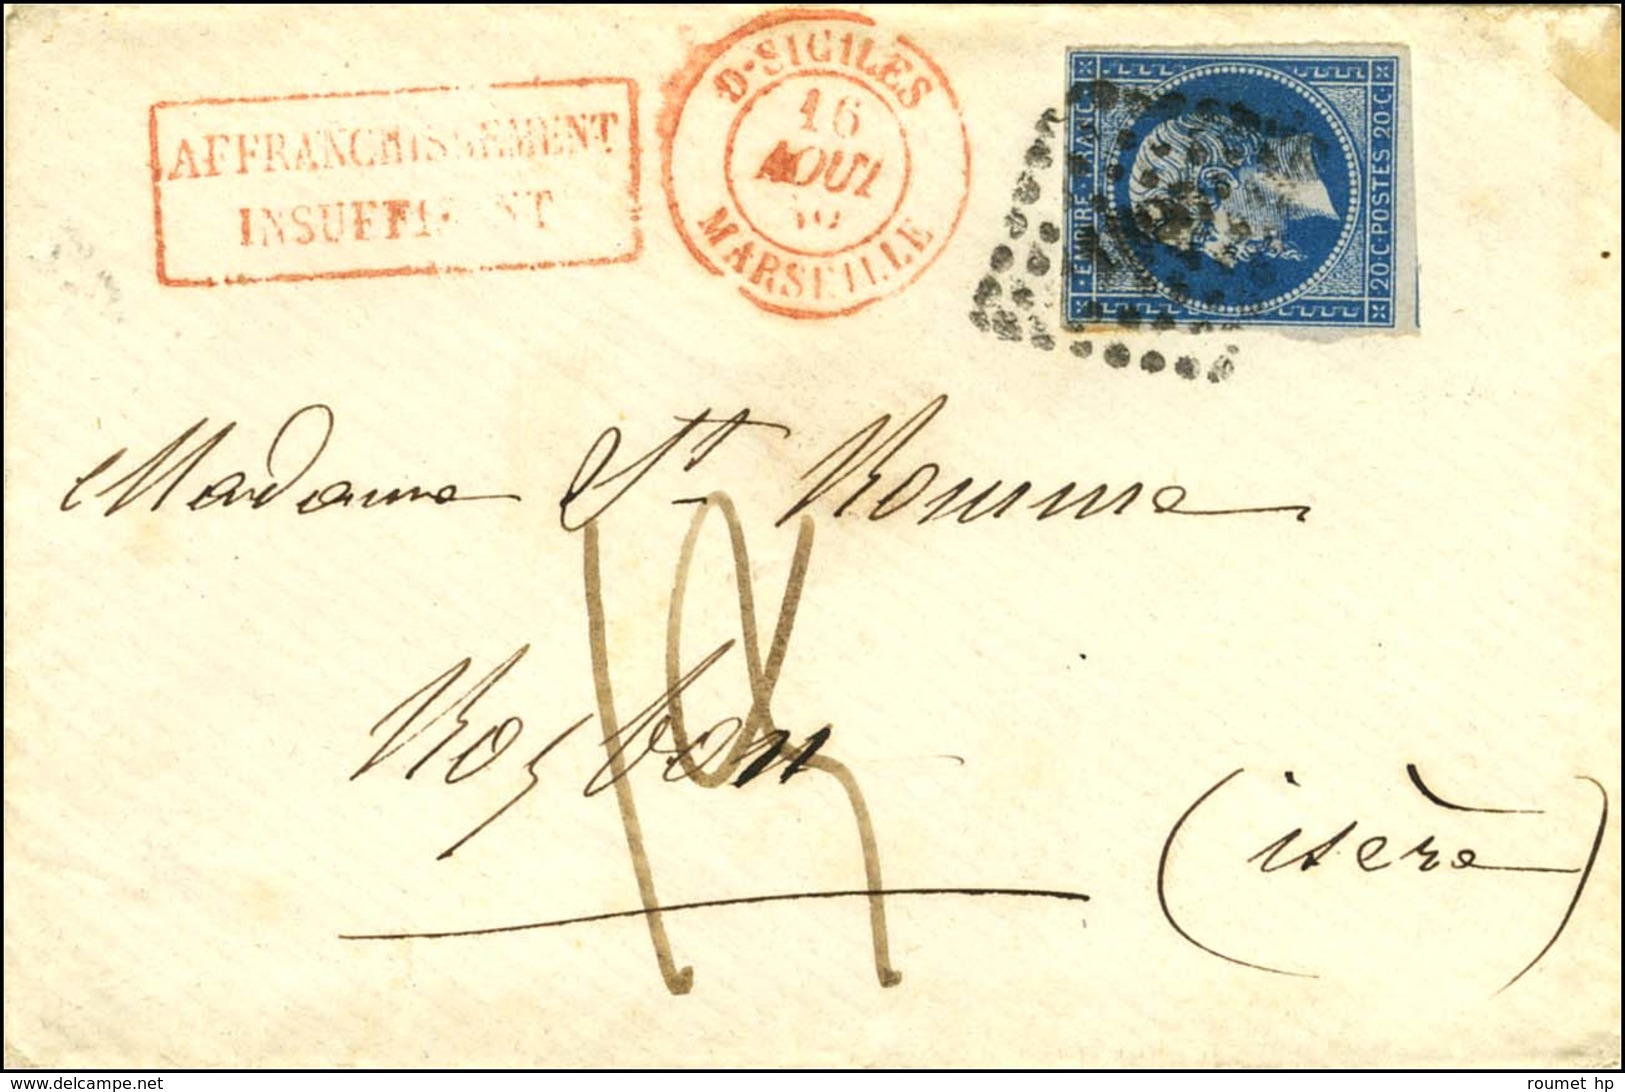 AFFRANCHISSEMENT
INSUFFISANT
D-SICILES
16
AOUT
MARSEILLE
EMPIRE FRANC
20 C POSTES 20 C
Madame St Romme
Roybon
(isère)
roumet hp